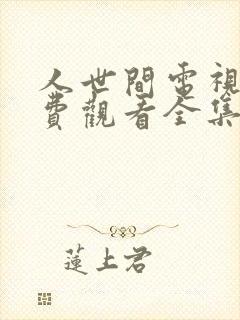 人世間電視
費觀看全集
蓮上君